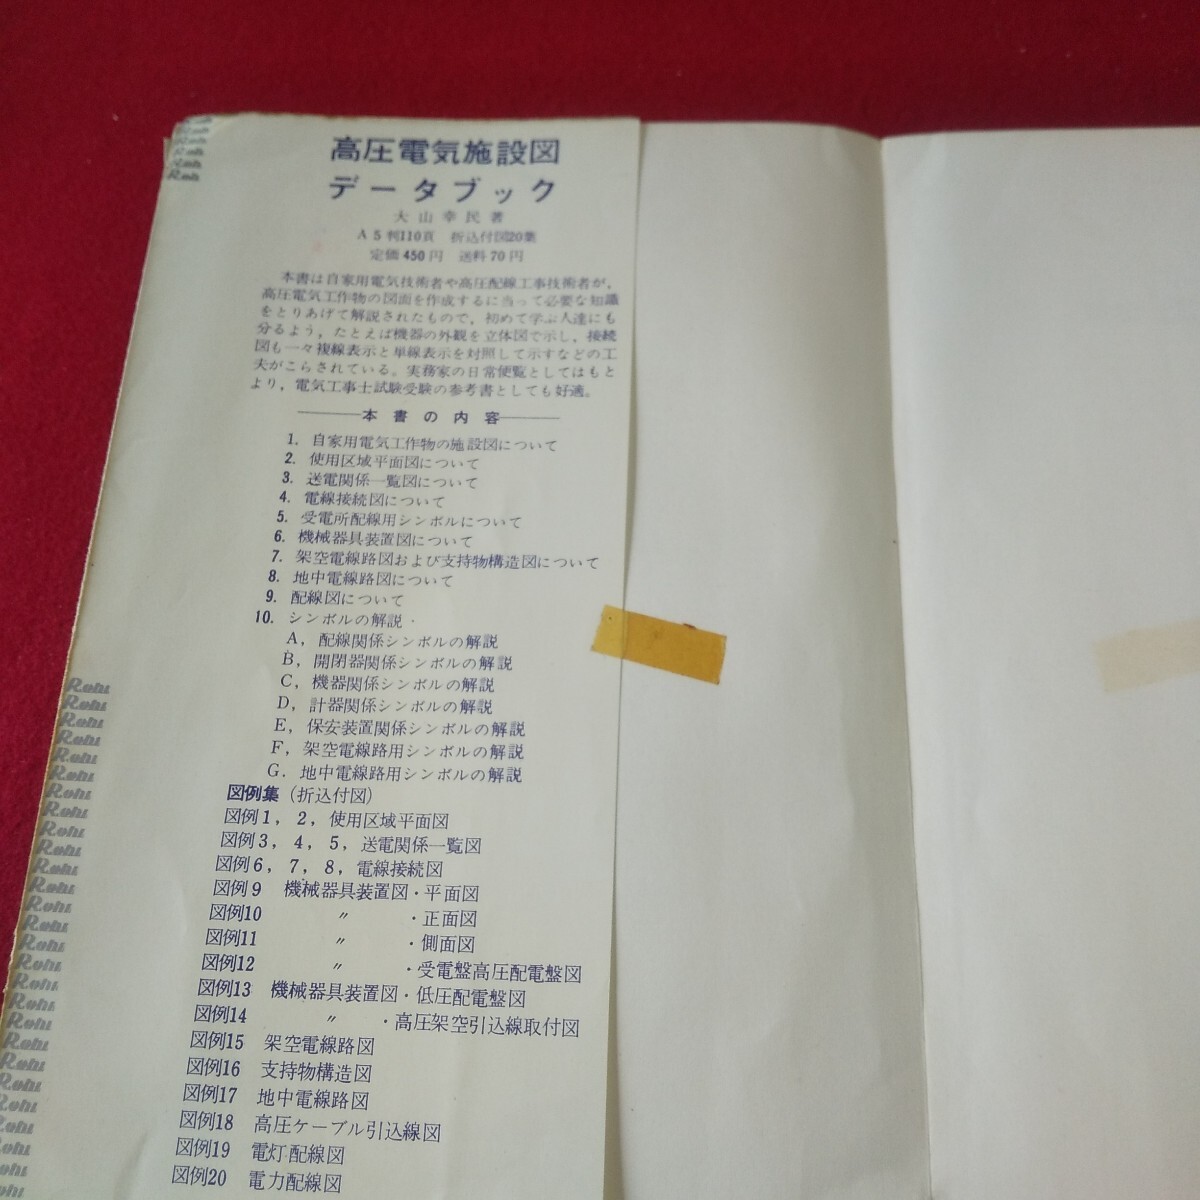 高圧電気施設図
データブック
大山幸民著
A5判110頁 折込付図20集
定価450円 送料70円
本書は自家用電気技術者や高圧配線工事技術者が,
高圧電気工作物の図面を作成するに当って必要な知識
をとりあげて解説されたもので，初めて学ぶ人達にも
分るよう，たとえば機器の外観を立体図で示し，接続
図も一々複線表示と単線表示を対照して示すなどの工
夫がこらされている。実務家の日常便覧としてはもと
より，電気工事士試験受験の参考書としても好適。
本書の内容
1. 自家用電気工作物の施設図について
2. 使用区域平面図について
3. 送電関係一覧図について
4. 電線接続図について
5. 受電所配線用シンボルについて
6. 機械器具装置図について
7. 架空電線路図および支持物構造図について
8. 地中電線路図について
9. 配線図について
10. シンボルの解説
A，配線関係シンボルの解説
B，開閉器関係シンボルの解説
C，機器関係シンボルの解説
D，計器関係シンボルの解説
E，保安装置関係シンボルの解説
F，架空電線路用シンボルの解説
G．地中電線路用シンボルの解説
図例集（折込付図）
図例1，2，使用区域平面図
図例3，4，5，送電関係一覧図
図例6，7，8，電線接続図
図例9 機械器具装置図・平面図
図例10 〃 ・正面図
図例11 〃 ・側面図
図例12 〃 ・受電盤高圧配電盤図
図例13 機械器具装置図・低圧配電盤図
図例14 〃 ・高圧架空引込線取付図
図例15 架空電線路図
図例16 支持物構造図
図例17 地中電線路図
図例18 高圧ケーブル引込線図
図例19 電灯配線図
図例20 電力配線図